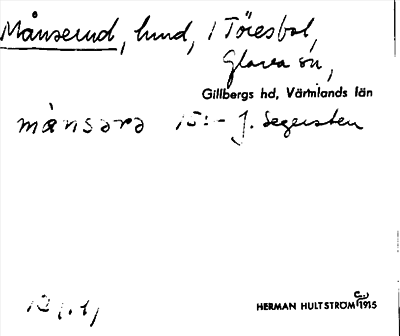 Månserud, hund, 1 Töresbol,
Glava sn,
Gillbergs hd, Värmlands län
månsərə 15:- J. Segersten
HERMAN HULTSTRÖM 1915